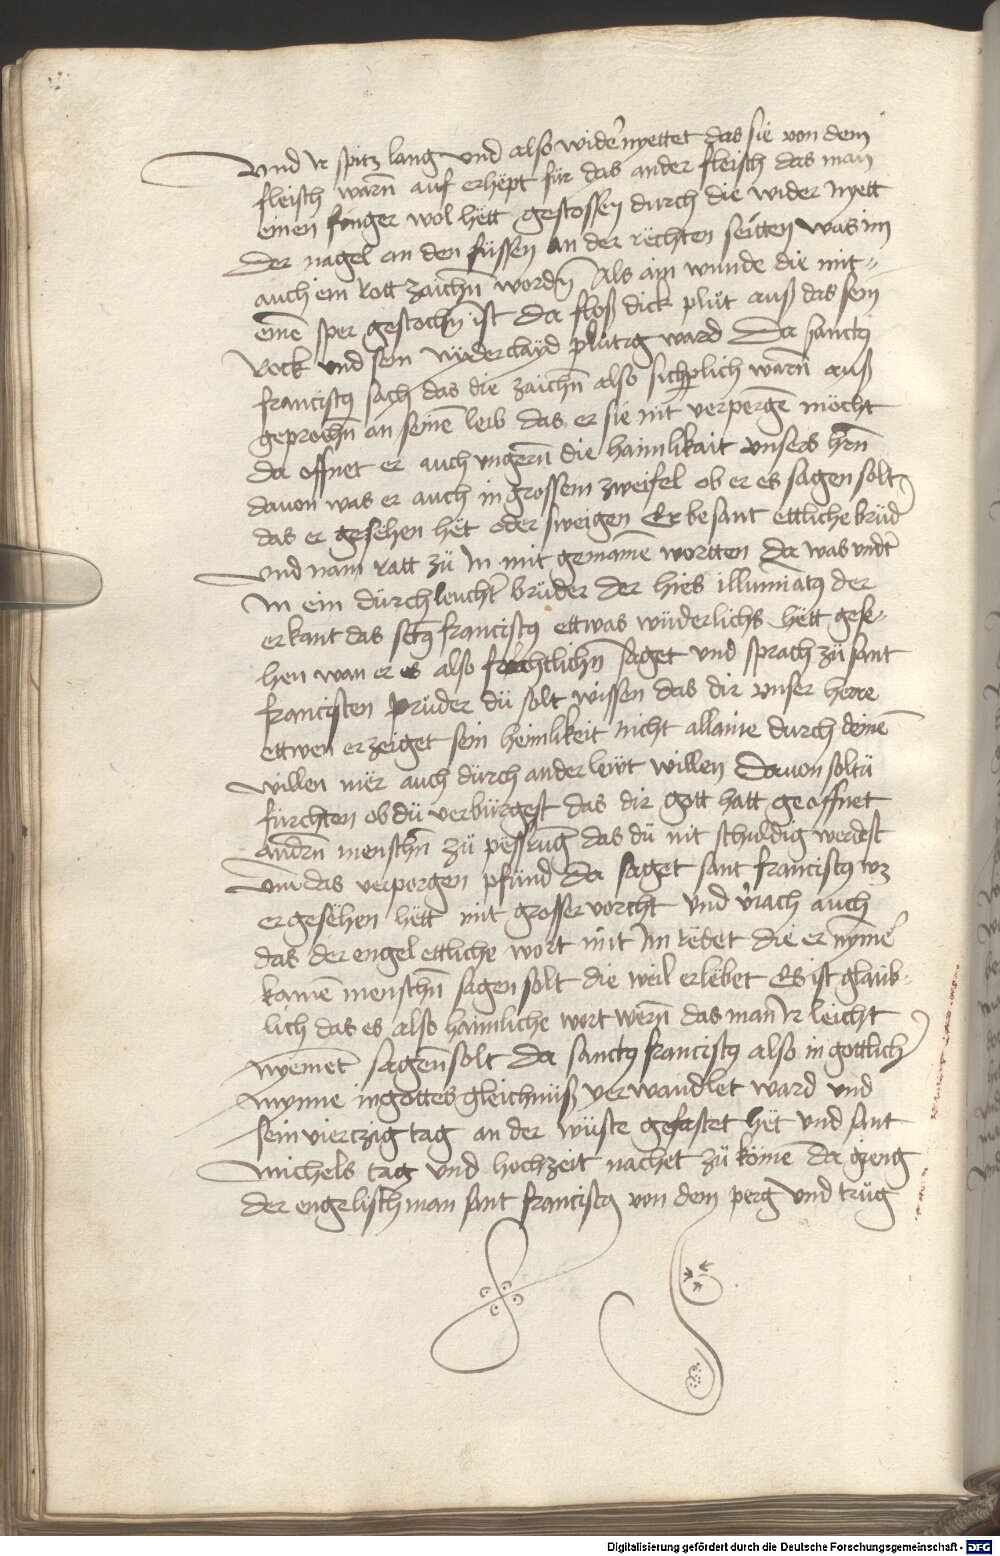 Vnd ir spitz lang vnd also wider nyettet das sie von dem
fleisch warn̄ auf erhëpt für das ander fleisch das man
einen finger wol hëtt gestossen durch die wider nyett
Der nagel an den füssen an der rëchten seitten was im
auch ein rott zaichn̄ wordn̄ Als ain wunde die mit
einē sper gestochn̄ ist Da floß dick plüt auß das sein
Rock vnd sein nyderclayd plütig ward Da sanctꝰ
franciscꝰ sach das die zaichn̄ also sichplich warn̄ auß
geprochn̄ an seinē leib das er sie nit verpergē möcht
da offnet er auch vngern̄ die haimlikait vnsers hern̄
dauon was er auch in grossem zweifel ob er es sagen solt
das er gesehen hët oder sweigen Er besant ettliche brüdˀ
vnd nam ratt zü In mit gemainē wortten Da was vndˀ
In ein dürchleuchtˀ brüder der hies illuminatꝰ der
erkant das sctꝰ franciscꝰ ettwas wüderlichs hëtt gese-
hen wan er es also forchtlichn̄ saget vnd sprach zü sant
francisten prüder dü solt wissen das dir vnser herre
ettwen erzeiget sein heimlikeit nicht allaine durch deinē
willen mër auch dürch ander lewt willen Dauon soltü
fürchten ob dü verbürgest das dir gott hatt geoffnet
andern̄ menschn̄ zü pessrūg das dü nit schuldig werdest
vm das verporgen pfünd Da saget sant franciscꝰ wz
er gesëhen hëtt mit grosser vorcht vnd v̓iach auch
das der engel ettliche wort mit Im rëdet die er nȳmē
kainē menschn̄ sagen solt die weil er lëbet Es ist glaüb-
lich das es also haimliche wort wern̄ das man ir leicht
nyemet sagen solt Da sanctꝰ franciscꝰ also in gottlichˀ
mynne in gottes gleichnüß verwandlet ward vnd
sein vierczig tag an der wüste gefastet hët vnd sant
michels tag vnd hochzeit nachet zü kömē da gieng
der engelisch man sant franciscꝰ von dem perg vnd trüg
Digitalisierung gefördert durch die Deutsche Forschungsgemeinschaft - DFG